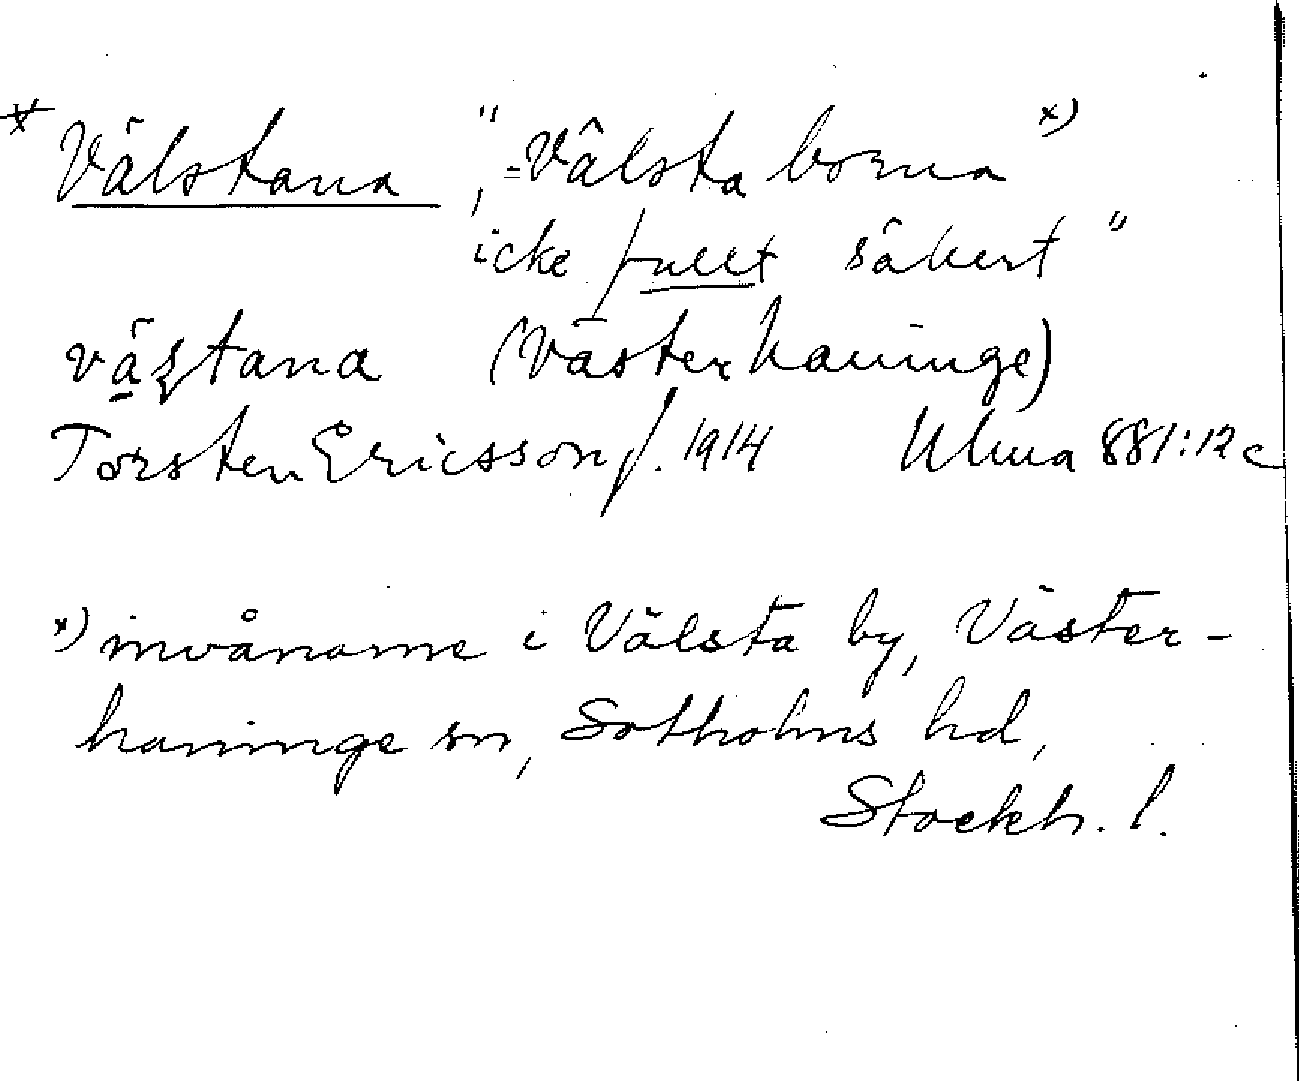 * Välstana „=Välstaborna" x)
icke fullt säkert"
väştana (Västerhaninge)
Torsten Ericsson f. 1914 Ulma 881:12 c
x) invånarne i Välsta by, Väster-
haninge sn, Sotholms hd,
Stockh. l.